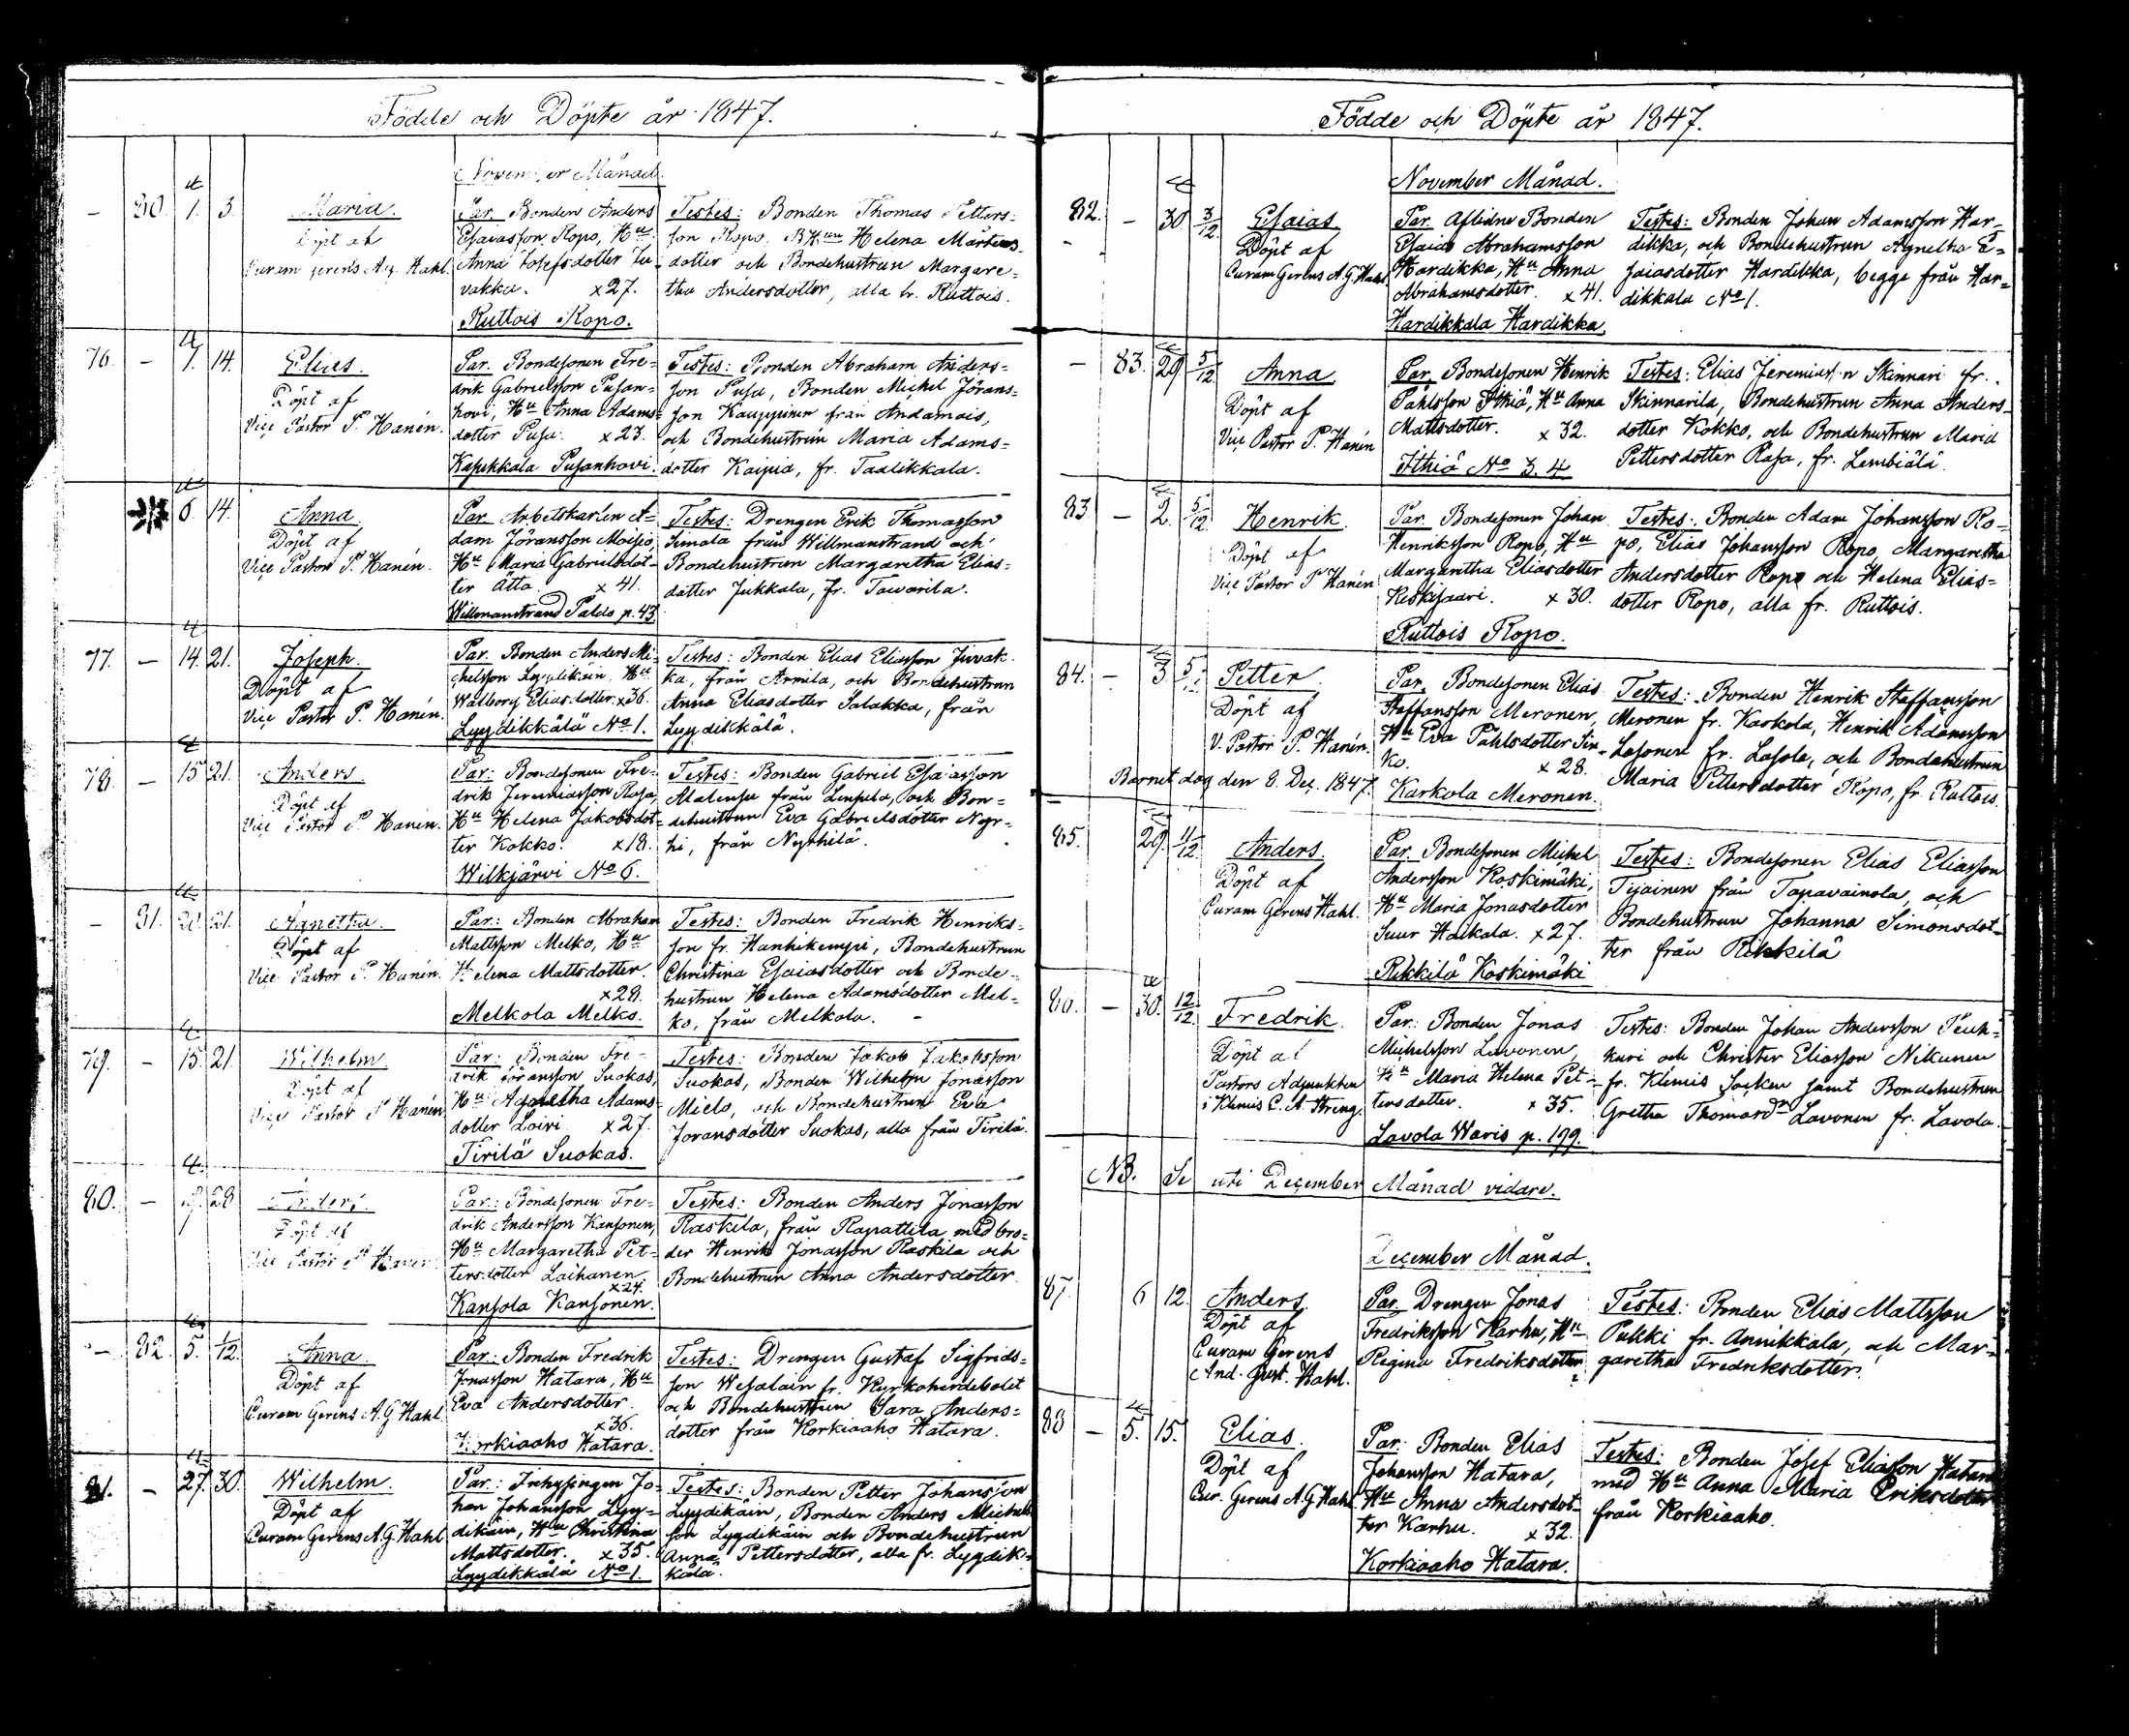 Födde och Döpte år 1847.
November Månad.
– 80. 1. 3. Maria.
Döpt af
Curam gerens Aug. Hahl.
Par. Bonden Anders
Esaiasson Ropo, Hu
Anna Josefsdotter Ju-
vakka. x 27.
Ruttois Ropo.
Testes: Bonden Thomas Petters-
son Ropo, BHun Helena Mårtens-
dotter och Bondehustrun Margare-
tha Andersdotter, alla fr. Ruttois.
76. – 7. 14. Elias.
Döpt af
Vice Pastor P. Hanén.
Par. Bondesonen Fre-
drik Gabrielsson Pusan-
hovi, Hu Anna Adams-
dotter Pusa. x 23.
Kapekkala Pusanhovi.
Testes: Bonden Abraham Anders-
son Pusa, Bonden Michel Jörans-
son Kauppinen från Andamais,
och Bondehustrun Maria Adams-
dotter Kaipia, fr. Taalikkala.
6. 14. Anna
Döpt af
Vice Pastor P. Hanén.
Par. Arbetskarlen A-
dam Jöransson Moipo
Hu Maria Gabrielsdot-
ter Ätta. x 41.
Willmanstrand Paldo p. 43.
Testes: Drengen Erik Thomasson
Simola från Willmanstrand och
Bondehustrun Margaretha Elias-
dotter Jukkala, fr. Tawarila.
77. – 14. 21. Joseph.
Döpt af
Vice Pastor P. Hanén.
Par. Bonden Anders Mi-
chelsson Lyydikäin, Hu
Walborg Eliasdotter x 36.
Lyydikkälä No 1.
Testes: Bonden Elias Eliasson Juvak-
ka, från Armila, och Bondehustrun
Anna Eliasdotter Salakka, från
Lyydikkälä.
78. – 15. 21. Anders.
Döpt af
Vice Pastor P. Hanén.
Par: Bondesonen Fre-
drik Jeremiasson Rasa,
Hu Helena Jakobsdot-
ter Kokko. x 18.
Wilkjärvi No 6.
Testes: Bonden Gabriel Esaiasson
från och Bon-
dehustrun Eva Gabrielsdotter Nyr-
hi, från Nyrhilä.
– 81. 21. Agnetha.
Döpt af
Vice Pastor P. Hanén.
Par: Bonden Abraham
Mattsson Melko, Hu
Helena Mattsdotter.
x 28.
Melkola Melko.
Testes: Bonden Fredrik Henriks-
son fr. Hanhikempi, Bondehustrun
Christina Esaiasdotter och Bonde-
hustrun Helena Adamsdotter Mel-
ko, från Melkola. –
79. – 15. 21. Wilhelm.
Döpt af
Vice Pastor P. Hanén
Par: Bonden Fre-
drik Jöransson Suokas,
Hu Agnetha Adams-
dotter Loiri x 27.
Tirilä Suokas.
Testes: Bonden Jakob Jakobsson
Suokas, Bonden Wilhelm Jonasson
Mielo, och Bondehustrun Eva
Joransdotter Suokas, alla från Tirilä.
80. – 28. Anders.
Döpt af
Vice Pastor P. Hanén.
Par: Bondesonen Fre-
drik Andersson Kansonen,
Hu Margaretha Pet-
tersdotter Laihanen
x 24.
Kansola Kansonen.
Testes: Bonden Anders Jonasson
Raskila, från Rapattila med bro-
der Henrik Jonasson Raskila och
Bondehustrun Anna Andersdotter.
– 82. 5. 1/12. Anna.
Döpt af
Curam Gerens A. G. Hahl.
Par: Bonden Fredrik
Jonasson Hatara, Hu
Eva Andersdotter.
x 36.
Korkiaaho Hatara.
Testes: Drengen Gustaf Sigfrids-
son Wesalain fr. Kyrkoherdebolet
och Bondehustrun Sara Anders-
dotter från Korkiaaho Hatara.
81. – 27. 30. Wilhelm.
Döpt af
Curam Gerens A. G. Hahl
Par: Inhysingen Jo-
han Johansson Lyy-
dikäin, Hu Christina
Mattsdotter. x 35.
Lyydikkälä No 1.
Testes: Bonden Petter Johansson
Lyydikäin, Bonden Anders Michels-
son Lyydikäin och Bondehustrun
Anna Pettersdotter, alla fr. Lyydik-
kälä.
Födde och Döpte år 1847.
November Månad.
82. – 30. 3/12. Esaias.
Döpt af
Curam Gerens A. G. Hahl
Par. Aflidne Bonden
Esaias Abrahamsson
Hardikka, Hu Anna
Abrahamsdotter. x 41.
Hardikkala Hardikka.
Testes: Bonden Johan Adamsson Har-
dikka, och Bondehustrun Agnetha E-
saiasdotter Hardikka, begge från Har-
dikkala No 1.
– 83. 29. 5/12. Anna
Döpt af
Vice Pastor P. Hanén
Par. Bondesonen Henrik
Påhlsson Ithiä, Hu Anna
Mattsdotter. x 32.
Ithiä No 3. 4
Testes: Elias Jeremiasson Skinnari fr.
Skinnarila, Bondehustrun Anna Anders-
dotter Kokko, och Bondehustrun Maria
Pettersdotter Rasa, fr. Lembiälä.
83 – 2. 5/12. Henrik.
Döpt af
Vice Pastor P. Hanén
Par. Bondesonen Johan
Henriksson Ropo, Hu
Margaretha Eliasdotter
Keskisaari. x 30.
Ruttois Ropo.
Testes: Bonden Adam Johansson Ro-
po, Elias Johansson Ropo, Margaretha
Andersdotter Ropo och Helena Elias-
dotter Ropo, alla fr. Ruttois.
84. – 3 5/ Petter.
Döpt af
V. Pastor P. Hanén.
Barnet dog den 8. Dec. 1847.
Par. Bondesonen Elias
Staffansson Meronen,
Hu Eva Pahlsdotter Sin-
ko. x 28.
Karkola Meronen.
Testes: Bonden Henrik Staffansson
Meronen fr. Karkola, Henrik Adamsson
Lasonen fr. Lasola, och Bondehustrun
Maria Pettersdotter Ropo, fr. Ruttois.
85. 29. 11/12. Anders.
Döpt af
Curam Gerens Hahl.
Par. Bondesonen Michel
Andersson Koskimäki,
Hu Maria Jonasdotter
Suur Haikala. x 27.
Rikkilä Koskimäki
Testes: Bondesonen Elias Eliasson
Tijainen från Tapavainola, och
Bondehustrun Johanna Simonsdot-
ter från Rikkilä
86. – 30. 12/12. Fredrik.
Döpt af
Pastors Adjunkten
i Klemis C. A. Streng.
Par: Bonden Jonas
Michelsson Lavonen,
Hu Maria Helena Pet-
tersdotter. x 35.
Lavola Waris p. 199.
Testes: Bonden Johan Andersson Peuh-
kuri och Christer Eliasson Nikunen
fr. Klemis Socken samt Bondehustrun
Gretha Thomasdr Lavonen fr. Lavola.
NB. Se uti December Månad vidare.
December Månad.
87. 6 12. Anders.
Döpt af
Curam Gerens
And. Gust. Hahl.
Par. Drengen Jonas
Fredriksson Karhu, Hu
Regina Fredriksdotter
Testes: Bonden Elias Mattsson
Pukki fr. Annikkala, och Mar-
garetha Fredriksdotter.
88 – 5. 15. Elias.
Döpt af
Cur. Gerens A. G. Hahl
Par: Bonden Elias
Johansson Hatara,
Hu Anna Andersdot-
ter Karhu. x 32.
Korkiaaho Hatara.
Testes: Bonden Josef Eliasson Hatara
med Hu Anna Maria Eriksdotter
från Korkiaaho.